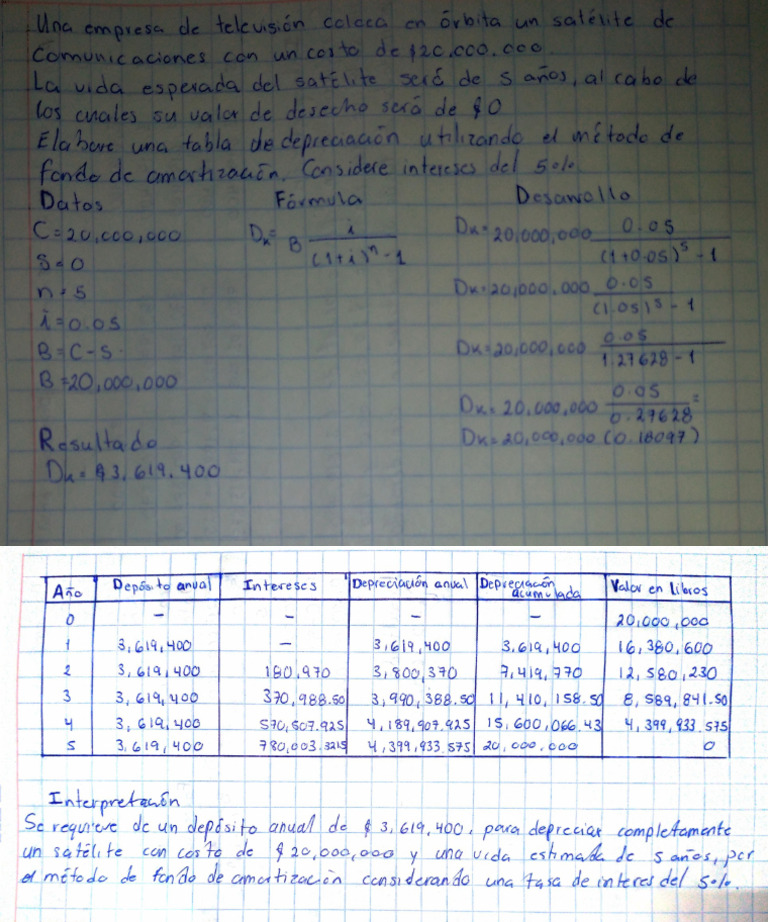 Una empresa de televisión coloca en órbita un satélite de
comunicaciones con un costo de $20,000,000
La vida esperada del satélite será de 5 años, al cabo de
los cuales su valor de desecho será de $0
Elabore una tabla de depreciación utilizando el método de
fondo de amortización. Considere intereses del 5%.
Datos Fórmula Desarrollo
C=20,000,000
S=0
n=5
i=0.05
B=C-S
B=20,000,000
Resultado
Dk=$3,619,400
Dk= B i/((1+i)^n - 1)
Dk= 20,000,000 0.05/((1+0.05)^5 - 1)
Dk= 20,000,000 0.05/((1.05)^5 - 1)
Dk= 20,000,000 0.05/(1.27628 - 1)
Dk= 20,000,000 0.05/0.27628 =
Dk= 20,000,000 (0.18097)
Año Depósito anual Intereses Depreciación anual Depreciación acumulada Valor en Libros
0 - - - - 20,000,000
1 3,619,400 - 3,619,400 3,619,400 16,380,600
2 3,619,400 180,970 3,800,370 7,419,770 12,580,230
3 3,619,400 370,988.50 3,990,388.50 11,410,158.50 8,589,841.50
4 3,619,400 570,507.925 4,189,907.925 15,600,066.43 4,399,933.575
5 3,619,400 780,003.3215 4,399,933.575 20,000,000 0
Interpretación
Se requiere de un depósito anual de $3,619,400, para depreciar completamente
un satélite con costo de $20,000,000 y una vida estimada de 5 años, por
el método de fondo de amortización considerando una tasa de interes del 5%.